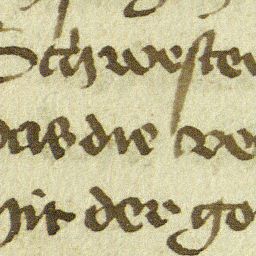 Schwester
das die ve
mit der go